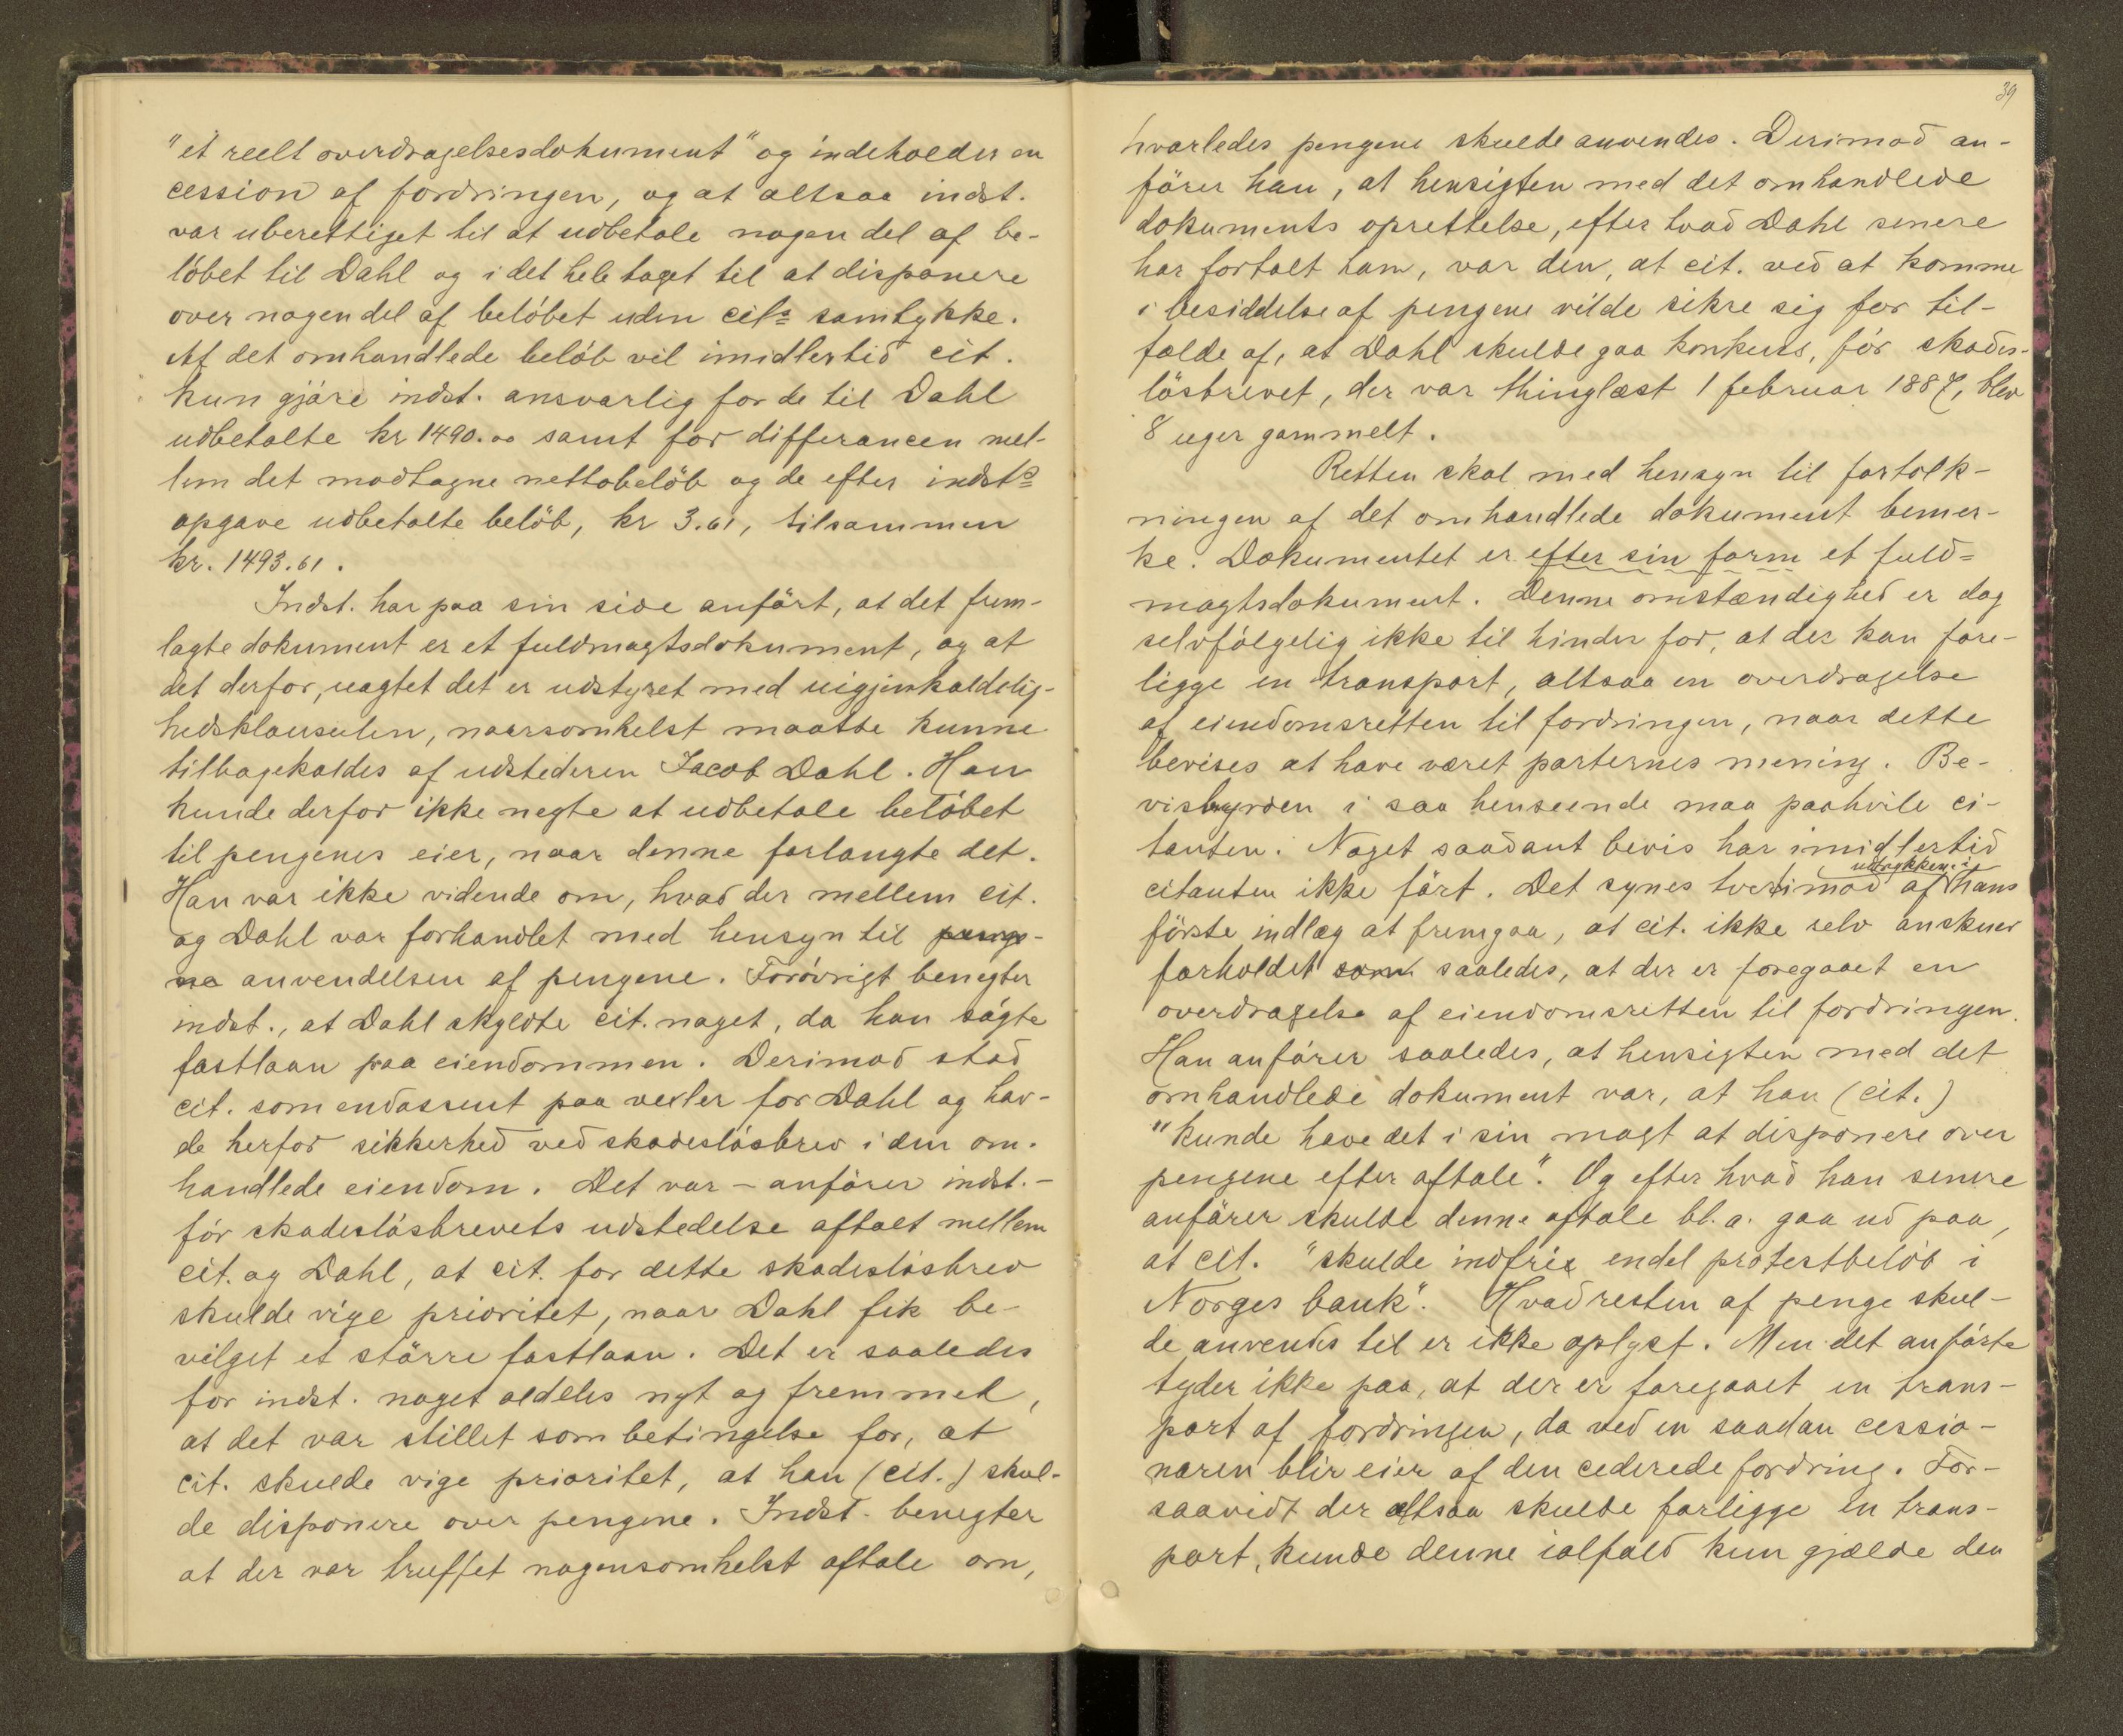 "et reelt overdragelsesdokument" og indeholder en
cession af fordringen, og at altsaa indst.
var uberettiget til at udbetale nogen del af be-
löbet til Dahl og i det hele taget til at disponere
over nogen del af belöbet uden cits samtykke.
Af det omhandlede belöb vil imidlertid cit.
kun gjöre indst. ansvarlig for de til Dahl
udbetalte kr 1490.00 samt for differancen mel-
lem det modtagne nettobelöb og de efter indsts
opgave udbetalte belöb, kr 3.61, tilsammen
kr. 1493.61.
Indst. har paa sin side anfört, at det frem-
lagte dokument er et fuldmagtsdokument, og at
det derfor, uagtet det er udstyret med uigjenkaldelig-
hedsklausulen, naarsomhelst maatte kunne
tilbagekaldes af udstederen Jacob Dahl. Han
kunde derfor ikke negte at udbetale belöbet
til pengenes eier, naar denne forlangte det.
Han var ikke vidende om, hvad der mellem cit.
og Dahl var forhandlet med hensyn til penge-
ne anvendelsen af pengene. Forövrigt benegter
indst., at Dahl skyldte cit. noget, da han sögte
fastlaan paa eiendommen. Derimod stod
cit. som endossent paa vexler for Dahl og hav-
de herfor sikkerhed ved skadeslösbrev i den om-
handlede eiendom. Det var - anförer indst. -
för skadeslösbrevets udstedelse aftalt mellem
cit. og Dahl, at cit. for dette skadeslösbrev
skulde vige prioritet, naar Dahl fik be-
vilget et större fastlaan. Det er saaledes
for indst. noget aldeles nyt og fremmed,
at det var stillet som betingelse for, at
cit. skulde vige prioritet, at han (cit.) skul-
de disponere over pengene. Indst. benegter
at der var truffet nogensomhelst aftale om,
39
hvorledes pengene skulde anvendes. Derimod an-
förer han, at hensigten med det omhandlede
dokuments oprettelse, efter hvad Dahl senere
har fortalt ham, var den, at cit. ved at komme
i besiddelse af pengene vilde sikre sig for til-
fælde af, at Dahl skulde gaa konkurs, för skades-
lösbrevet, der var thinglæst 1 februar 1887, blev
8 uger gammelt.
Retten skal med hensyn til fortolk-
ningen af det omhandlede dokument bemer-
ke. Dokumentet er efter sin form et fuld-
magtsdokument. Denne omstændighed er dog
selvfölgelig ikke til hinder for, at der kan fore-
ligge en transport, altsaa en overdragelse
af eiendomsretten til fordringen, naar dette
bevises at have været parternes mening. Be-
visbyrden i saa henseende maa paahvile ci-
tanten. Noget saadant bevis har imidlertid
udtrykkene i
citanten ikke fört. Det synes tvertimod af hans
förste indlæg at fremgaa, at cit. ikke selv anskuer
forholdet som saaledes, at der er foregaaet en
overdragelse af eiendomsretten til fordringen.
Han anförer saaledes, at hensigten med det
omhandlede dokument var, at han (cit.)
"kunde have det i sin magt at disponere over
pengene efter aftale". Og efter hvad han senere
anförer skulde denne aftale bl.a. gaa ud paa,
at cit. "skulde indfrie endel protestbelöb i
Norges bank". Hvad resten af penge skul-
de anvendes til er ikke oplyst. Men det anförte
tyder ikke paa, at der er foregaaet en trans-
port af fordringen, da ved en saadan cessio-
naren blir eier af den cederede fordring. For-
saavidt der altsaa skulde forligge en trans-
port, kunde denne ialfald kun gjælde den